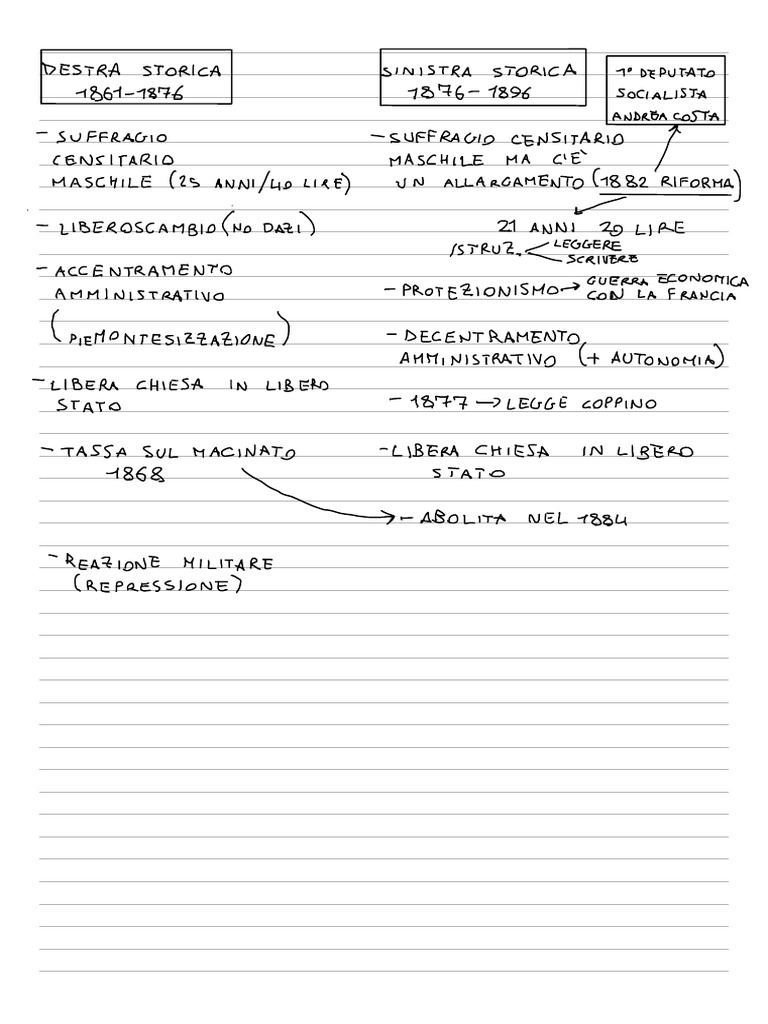 DESTRA STORICA
1861-1876
- SUFFRAGIO
CENSITARIO
MASCHILE (25 ANNI/40 LIRE)
- LIBEROSCAMBIO (NO DAZI)
- ACCENTRAMENTO
AMMINISTRATIVO
(PIEMONTESIZZAZIONE)
- LIBERA CHIESA IN LIBERO
STATO
- TASSA SUL MACINATO
1868
- REAZIONE MILITARE
(REPRESSIONE)
SINISTRA STORICA
1876-1896
1° DEPUTATO
SOCIALISTA
ANDREA COSTA
- SUFFRAGIO CENSITARIO
MASCHILE MA C'È
UN ALLARGAMENTO (1882 RIFORMA)
21 ANNI 20 LIRE
ISTRUZ. LEGGERE
SCRIVERE
- PROTEZIONISMO → GUERRA ECONOMICA
CON LA FRANCIA
- DECENTRAMENTO
AMMINISTRATIVO (+ AUTONOMIA)
- 1877 → LEGGE COPPINO
- LIBERA CHIESA IN LIBERO
STATO
- ABOLITA NEL 1884